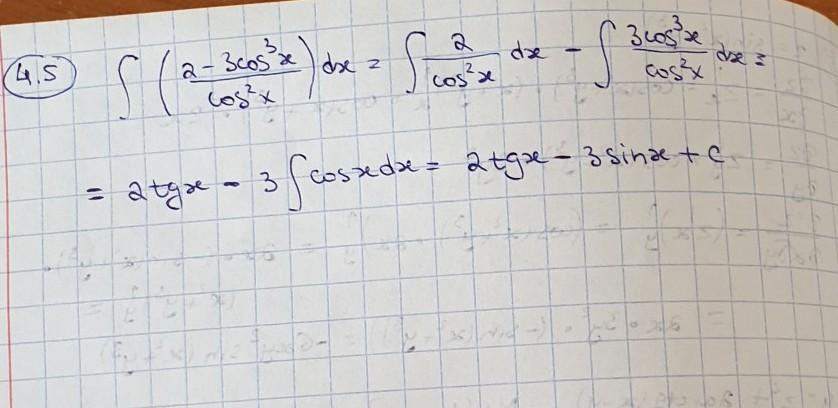 4.5 ∫ ( (2 - 3cos³x) / cos²x ) dx = ∫ 2 / cos²x dx - ∫ 3cos³x / cos²x dx =
= 2tgx - 3 ∫ cosx dx = 2tgx - 3sinx + c